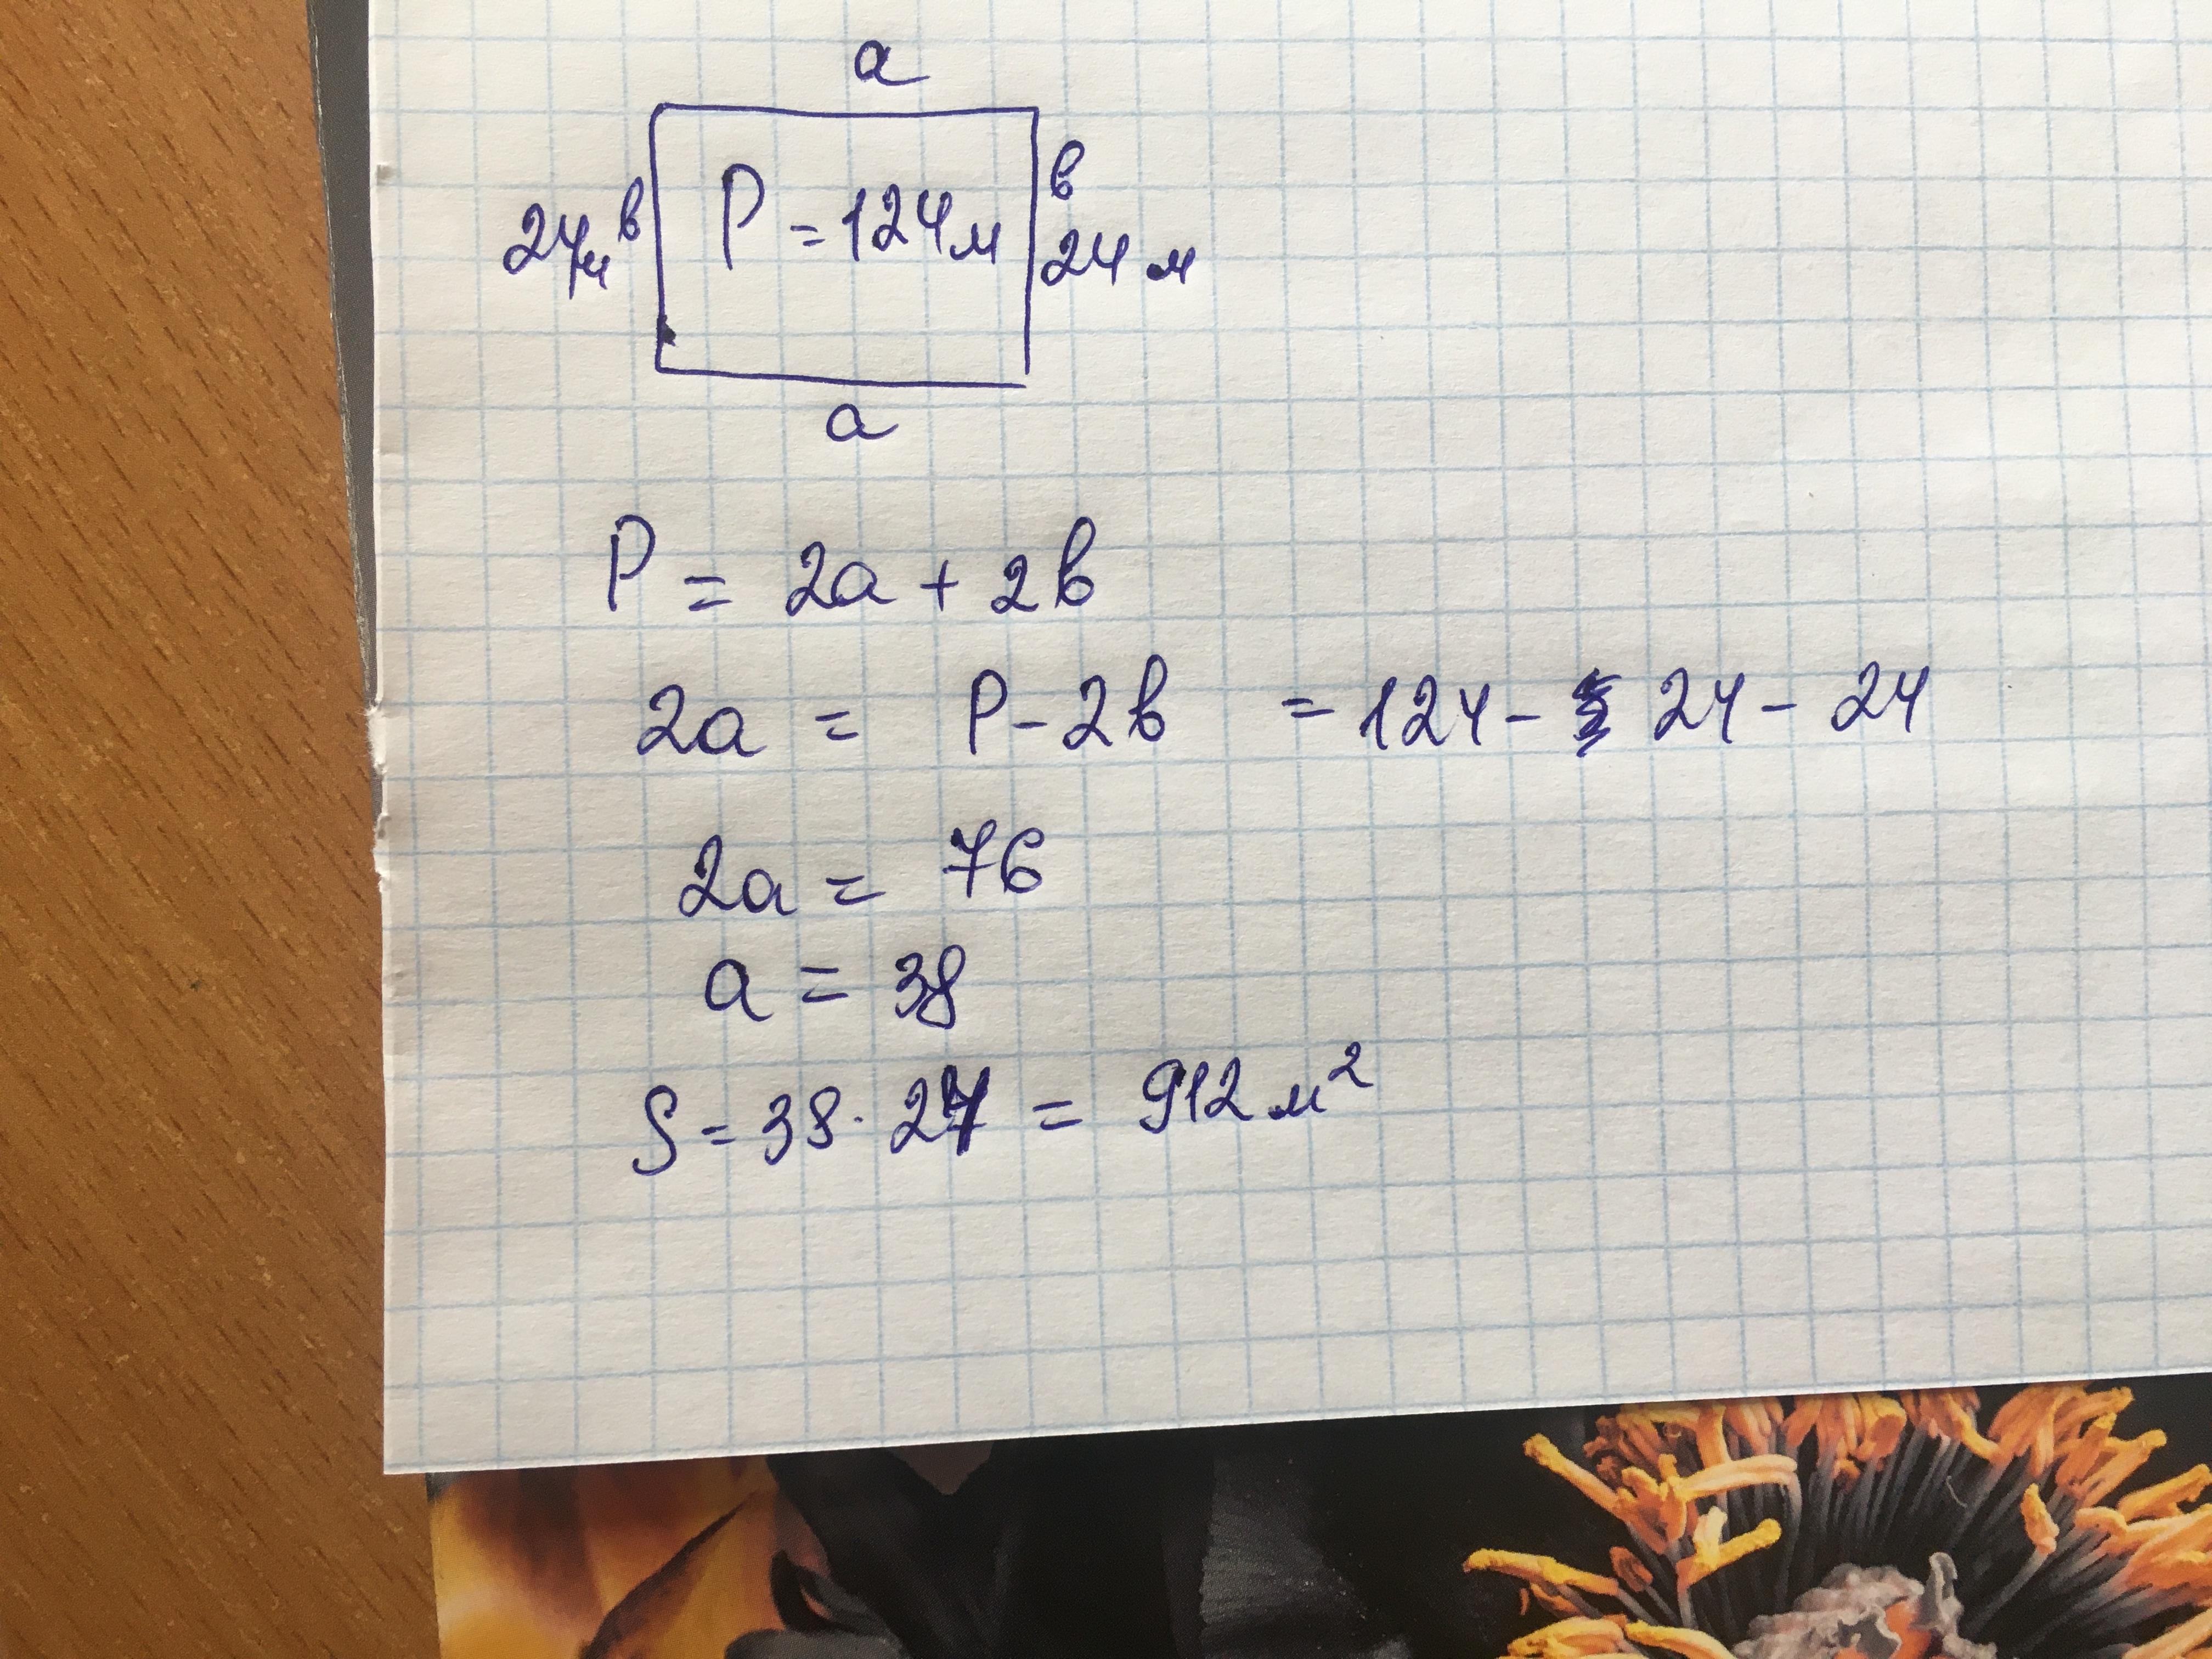 a
24м в P = 124 м в 24 м
a
P = 2a + 2в
2a = P - 2в = 124 - 24 - 24
2a = 76
a = 38
S = 38 · 24 = 912 м²